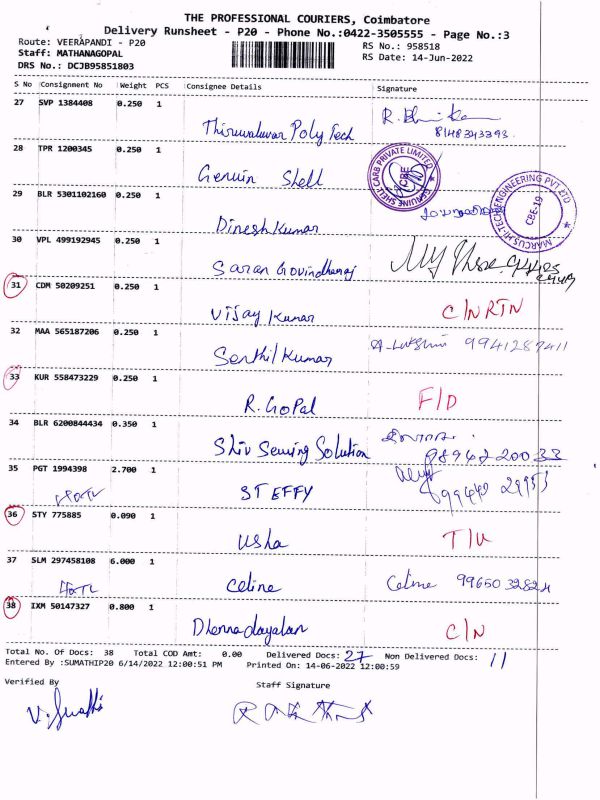 THE PROFESSIONAL COURIERS, Coimbatore
Delivery Runsheet - P20 - Phone No.:0422-3505555 - Page No.:3
Route: VEERAPANDI - P20
Staff: MATHANAGOPAL
DRS No.: DCJB95851803
RS No.: 958518
RS Date: 14-Jun-2022
S No Consignment No Weight PCS Consignee Details Signature
27 SVP 1384408 0.250 1
Thiruvaluvar Poly Tech
8148343393
28 TPR 1200345 0.250 1
Genuin Shell
GENUINE SHELL CARB PRIVATE LIMITED
29 BLR 5301102160 0.250 1
Dinesh Kumar
MARCUS HI-TECH ENGINEERING PVT LTD
CBE-19
30 VPL 499192945 0.250 1
Saran Govindharaj
31 CDM 50209251 0.250 1
Vijay Kumar C/N RTN
32 MAA 565187206 0.250 1
Senthil Kumar 9941287411
33 KUR 558473229 0.250 1
R. GoPal F/D
34 BLR 6200844434 0.350 1
Shiv Sewing Solution 98942 20033
35 PGT 1994398 2.700 1
STEFFY 99440 29953
36 STY 775885 0.090 1
Usha T/U
37 SLM 297458108 6.000 1
Celine Celine 9965032824
38 IXM 50147327 0.800 1
Dhennadayalan C/N
Total No. Of Docs: 38 Total COD Amt: 0.00 Delivered Docs: 27 Non Delivered Docs: 11
Entered By :SUMATHIP20 6/14/2022 12:00:51 PM Printed On: 14-06-2022 12:00:59
Verified By Staff Signature